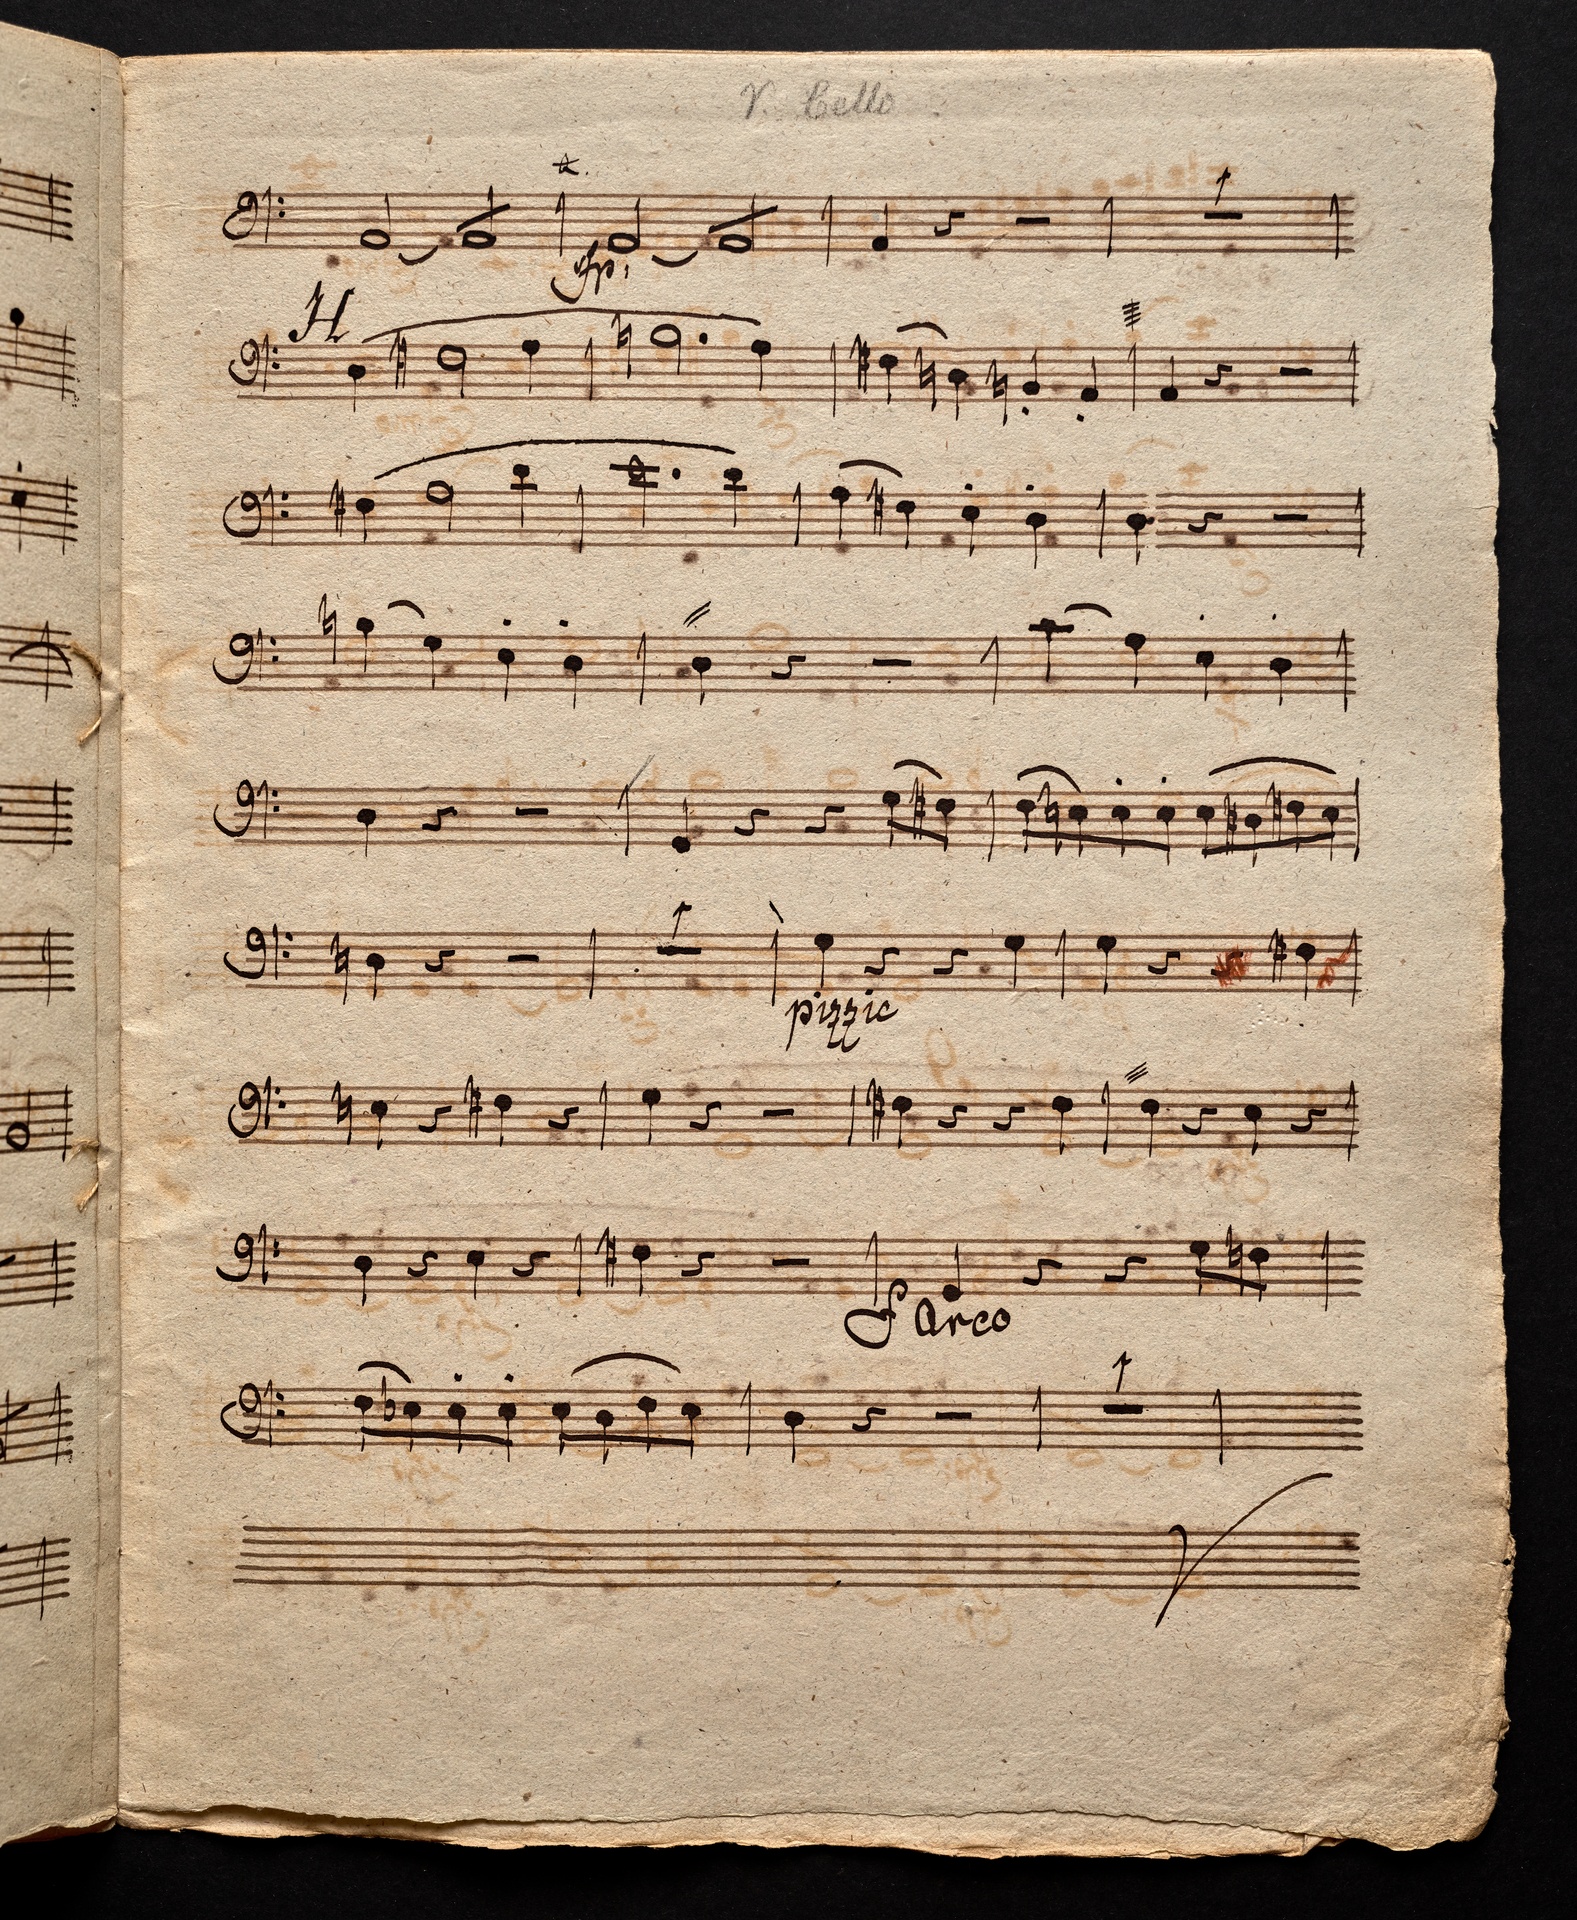 V. Cello
fp:
H
1
1
pizzic
f arco
1